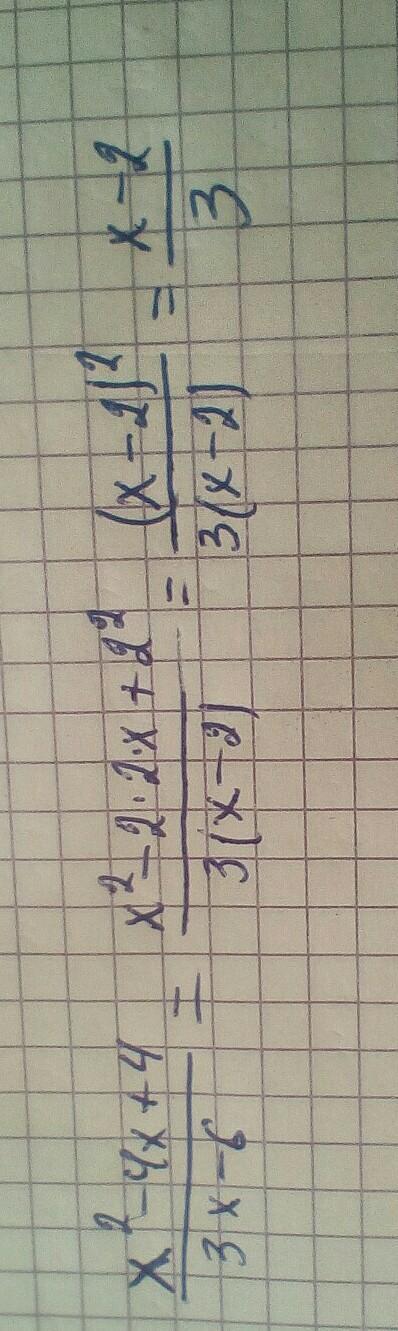 (x² - 4x + 4)/(3x - 6) = (x² - 2·2·x + 2²)/(3(x - 2)) = (x - 2)²/(3(x - 2)) = (x - 2)/3